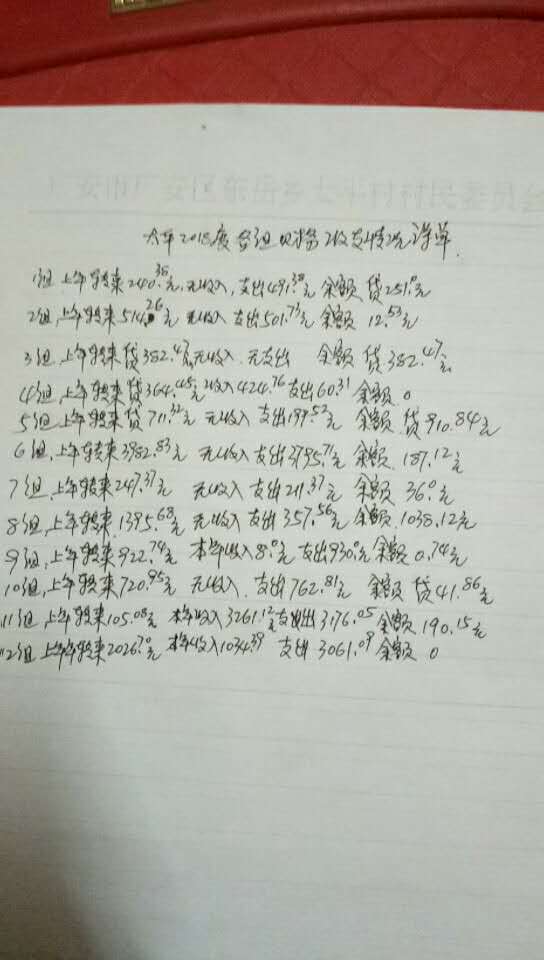 太平2018度各组财务收支情况详单.
1组,上年转来240.38元,无收入,支出491.38元 余额 贷251.0元
2组,上年转来514.26元 无收入 支出501.73元 余额 12.53元
3组,上年转来贷382.47元,无收入.无支出 余额 贷382.47元
4组,上年转来贷364.45元 收入424.76 支出60.31 余额 0
5组,上年转来贷711.32元 无收入 支出199.52元 余额 贷910.84元
6组,上年转来3982.83元 无收入 支出3795.71元 余额 187.12元
7组,上年转来247.37元 无收入 支出211.37元 余额 36.0元
8组,上年转来.1395.68元 无收入 支出357.56元 余额.1038.12元
9组,上年转来922.74元 本年收入8.0元 支出930.0元 余额 0.74元
10组,上年转来720.95元 无收入. 支出762.81元 余额 贷41.86元
11组,上年转来105.08元 本年收入3261.12元 支出3176.05 余额190.15元
12组 上年转来2026.70元 本年收入1034.39 支出 3061.09 余额 0